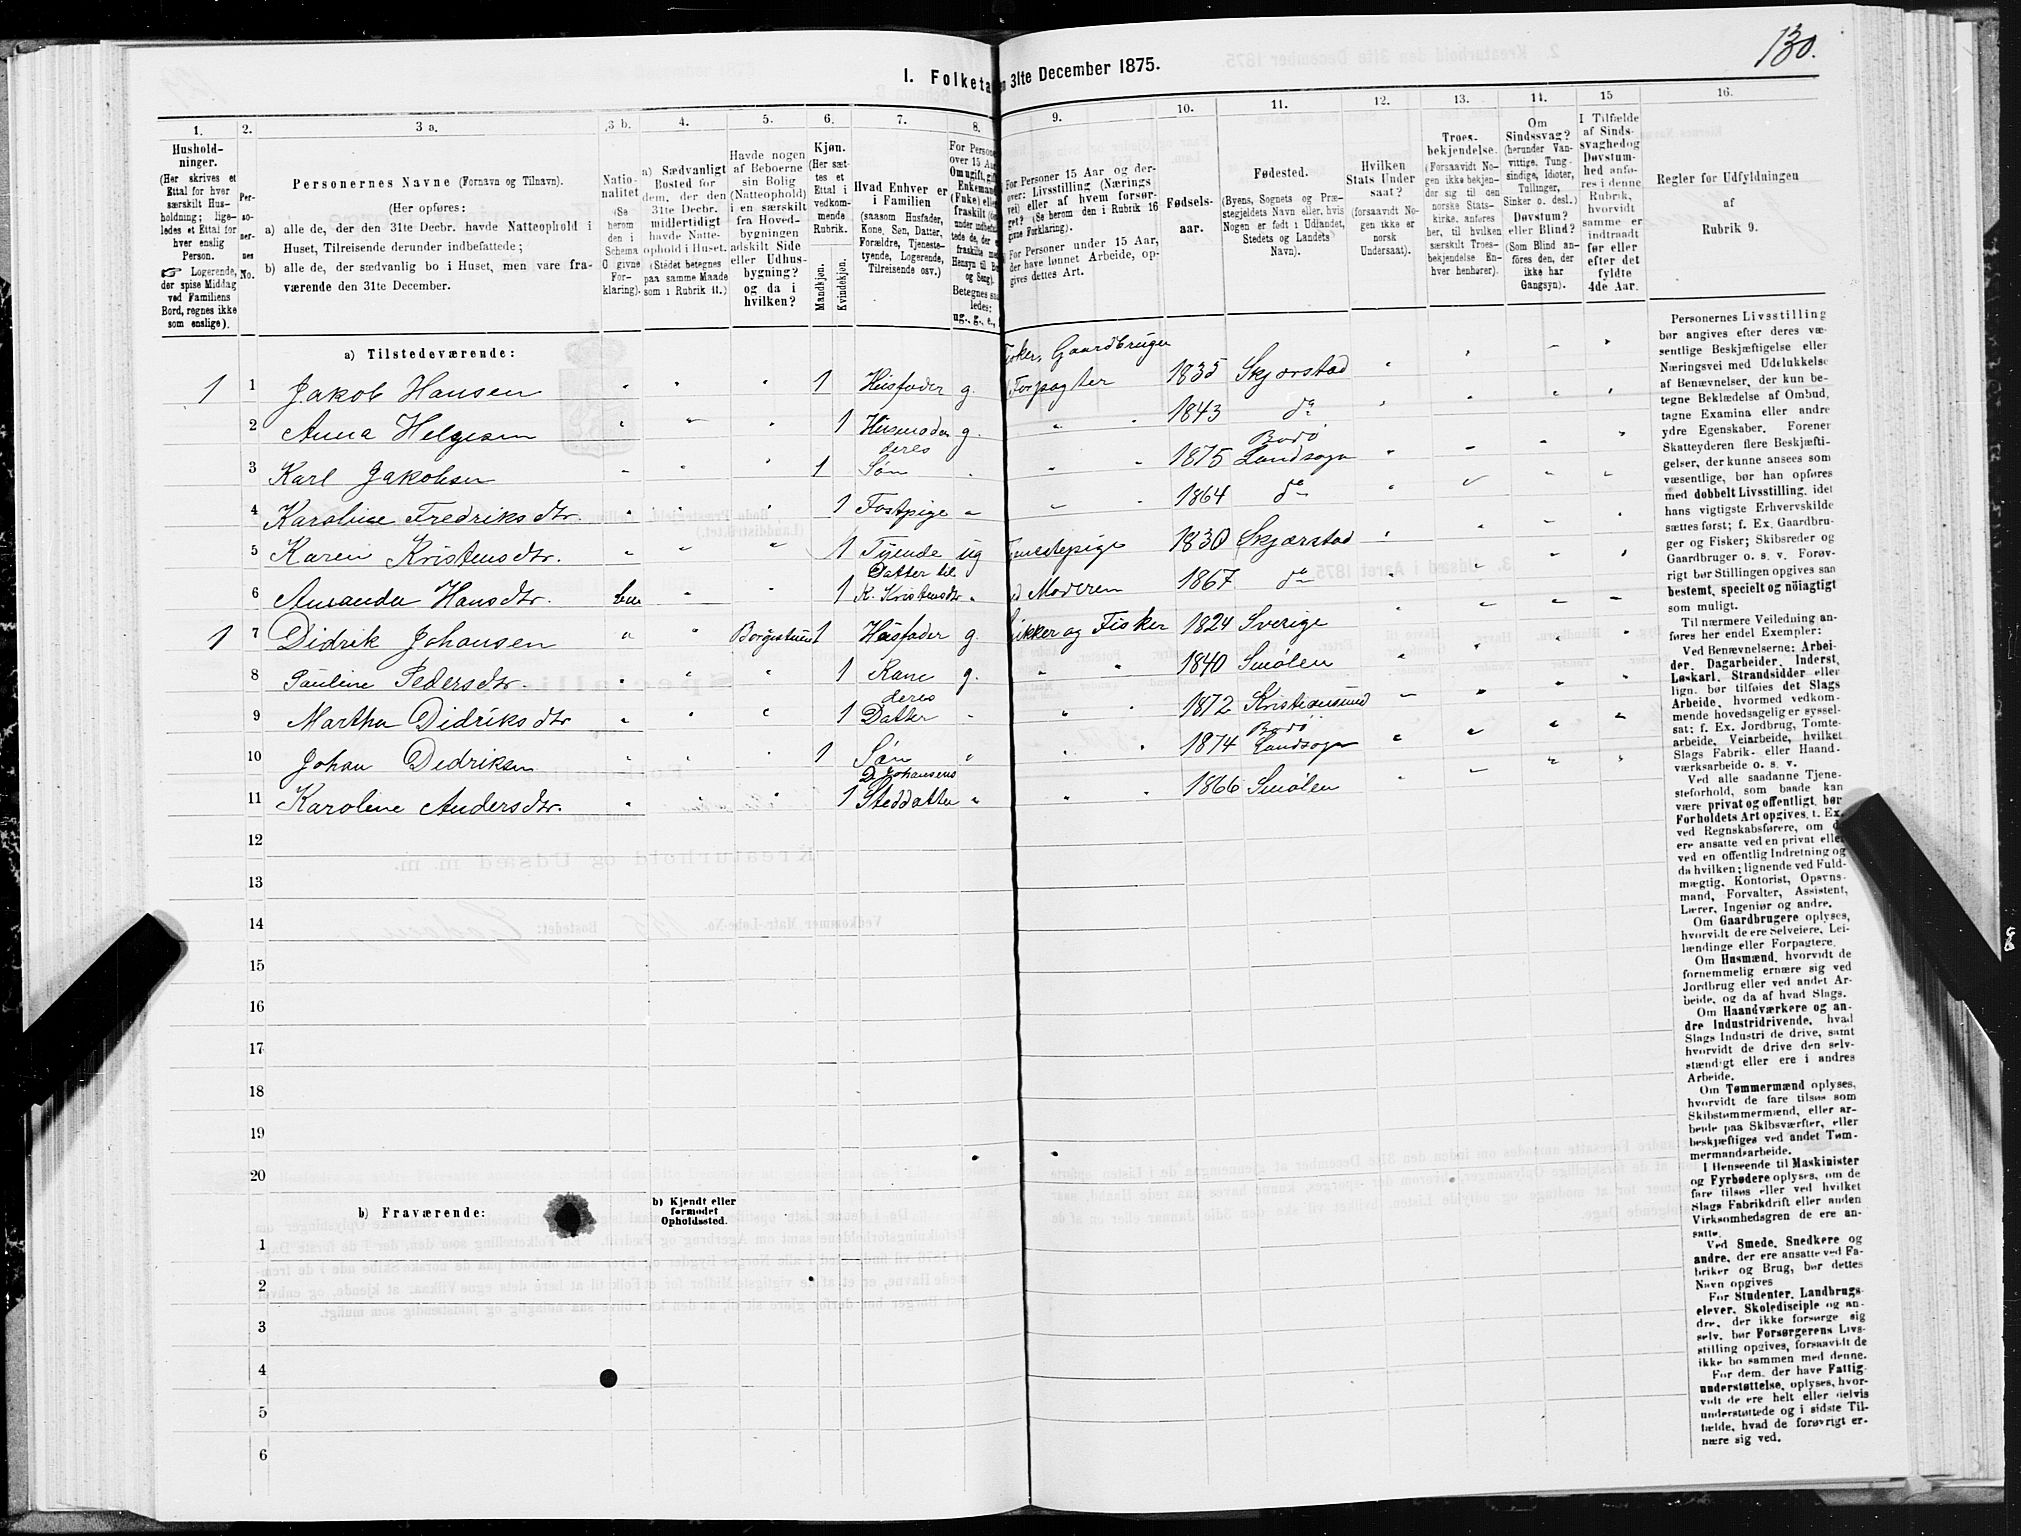 130.
I. Folketa
n 31te December 1875.
1.
2.
3 a.
3 b.
4.
5.
6.
7.
8.
9.
10.
11.
12.
13.
14.
15
16.
Hushold-
ninger.
(Her skrives et
Ettal for hver
særskilt Hus-
holdning; lige-
ledes et Ettal for
hver enslig
Person.
☞ Logerende,
der spise Middag
ved Familiens
Bord, regnes ikke
som enslige).
Per-
so-
ner-
nes
No.
Personernes Navne (Fornavn og Tilnavn).
(Her opføres:
a) alle de, der den 31te Decbr. havde Natteophold i
Huset, Tilreisende derunder indbefattede;
b) alle de, der sædvanlig bo i Huset, men vare fra-
værende den 31te December.
Natio-
nalitet
(Se
herom
den i
Schema
O givne
For-
klaring).
a) Sædvanligt
Bosted for
dem, der den
31te Decbr.
midlertidigt
havde Natte-
ophold i Huset.
(Stedet betegnes
paa samme Maade
som i Rubrik 11.)
Havde nogen
af Beboerne
sin Bolig
(Natteophold)
i en særskilt
fra Hoved-
bygningen
adskilt Side
eller Udhus-
bygning?
og da i
hvilken?
Kjøn.
(Her sæt-
tes et
Ettal i
vedkom-
mende
Rubrik.
Mandkjøn.
Kvindekjøn.
Hvad Enhver er
i Familien
(saasom Husfader,
Kone, Søn, Datter,
Forældre, Tjeneste-
tyende, Logerende,
Tilreisende osv.)
For Persone
over 15 Aar
Om ugift, gift
Enkemand
(Enke) eller
fraskilt
Betegnes saa
ledes:
ug., g., e.,
For Personer 15 Aar og der-
over: Livsstilling (Nærings
vei) eller af hvem forsør-
get? (Se herom den i Rubrik 16
givne Forklaring).
For Personer under 15 Aar,
der have lønnet Arbeide, op-
gives dettes Art.
Fødsels-
aar.
Fødested.
(Byens, Sognets og Præ-
stegjeldets Navn eller, hvis
Nogen er født i Udlandet,
Stedets og Landets
Navn).
Hvilken
Stats Under
saat?
(forsaavidt No-
gen ikke er
norsk
Undersaat).
Troes-
bekjendelse.
(Forsaavidt No-
gen ikke bekjen-
der sig til den
norske Stats-
kirke, anføres
her, til hvilken
særskilt Troes-
bekjendelse En-
hver henhører).
Om
Sindssvag?
(herunder Van-
vittige, Tung-
sindige, Idioter,
Tullinger,
Sinker o. desl.)
Døvstum?
eller Blind?
(Som Blind an-
føres den, der
ikke har
Gangsyn).
I Tilfælde
af Sinds-
svaghed og
Døvstum-
hed anfø-
res i denne
Rubrik,
hvorvidt
samme er
indtraadt
før eller
efter det
fyldte
4de Aar.
Regler for Udfyldningen
af
Rubrik 9.
a) Tilstedeværende:
1 1 Jakob Hansen " " " 1 Husfader g. Fisker, Gaardbruger Forpagter 1835 Skjerstad
2 Anna Helgesen " " " 1 Husmoder g. " 1843 do
3 Karl Jakobsen " " " 1 deres Søn " 1875 Bodø Landsogn
4 Karoline Fredriksdtr. " " " 1 Fostpige " " 1864 do
5 Karen Kristensdtr. " " " 1 Tyende ug Tjenestepige 1830 Skjærstad
6 Amanda Hansdtr. 1 Datter til K. Kristensdtr " Moderen 1867 do
1 7 Didrik Johansen " " Borgestuen 1 Husfader g. ikker og Fisker 1824 Sverige
8 Pauline Pedersdtr. " " " 1 Kone g. " " 1840 Smølen
9 Martha Didriksdtr " " " 1 deres Datter " " 1872 Kristiansund
10 Johan Didriksen " " " 1 Søn " " " 1874 Bodø Landsogn
11 Karoline Andersdtr. " " " 1 D. Johansens Steddatter " " " 1866 Smølen
12
13
14
15
16
17
18
19
20
b) Fraværende:
b) Kjendt eller
formodet
Opholdssted.
1
2
3
4
5
6
Personernes Livsstilling
bør angives efter deres væ-
sentlige Beskjæftigelse eller
Næringsvei med Udelukkelse
af Benævnelser, der kun be-
tegne Beklædelse af Ombud,
tagne Examina eller andre
ydre Egenskaber. Forener
Skatteyderen flere Beskjæfti-
gelser, der kunne ansees som
væsentlige, bør han opføres
med dobbelt Livsstilling, idet
hans vigtigste Erhvervskilde
sættes først; f. Ex. Gaardbru-
ger og Fisker; Skibsreder og
Gaardbruger o. s. v. Forøv-
rigt bør Stillingen opgives saa
bestemt, specielt og nöiagtigt
som muligt.
Til nærmere Veiledning an-
føres her endel Exempler:
Ved Benævnelserne: Arbei-
der, Dagarbeider, Inderst,
Løskarl, Strandsidder eller
lign. bør tilføies det Slags
Arbeide, hvormed vedkom-
mende hovedsagelig er syssel-
sat; f. Ex. Jordbrug, Tomte-
arbeide, Veiarbeide, hvilket
Slags Fabrik- eller Haand-
værksarbeide o. s. v.
Ved alle saadanne Tjene-
steforhold, som baade kan
være privat og offentligt, bør
Forholdets Art opgives, t. Ex.
ved Regnskabsførere, om d
ere ansatte ved en privat elle
ved en offentlig Indretning og
da hvilken; lignende ved Fuld-
mægtig, Kontorist, Opsyns-
mand, Forvalter, Assistent,
Lærer, Ingeniør og andre.
Om Gaardbrugere oplyses,
hvorvidt de ere Selveiere, Lei-
lændinge eller Forpagtere.
Om Husmænd, hvorvidt de
fornemmelig ernære sig ved
Jordbrug eller ved andet Ar-
beide, og da af hvad Slags.
Om Haandværkere og an-
dre Industridrivende, hvad
Slags Industri de drive, samt
hvorvidt de drive den selv-
stændigt eller ere i andres
Arbeide.
Om Tømmermænd oplyses,
hvorvidt de fare tilsøs som
Skibstømmermænd, eller ar-
beide paa Skibsværfter, eller
beskjæftiges ved andet Tøm-
mermandsarbeide.
I Henseende til Maskinister
og Fyrbødere oplyses, om de
fare tilsøs eller ved hvilket
Slags Fabrikdrift eller anden
Virksomhedsgren de ere an-
satte.
Ved Smede, Snedkere og
andre, der ere ansatte ved Fa-
briker og Brug, bør dettes
Navn opgives
For Studenter, Landbrugs-
elever, Skoledisciple og an-
dre, der ikke forsørge sig
selv, bør Forsørgerens Livs-
stilling opgives, forsaavidt de
ikke bo sammen med denne.
For dem, der have Fattig-
understøttelse, oplyses, hvor-
vidt de ere helt eller delvis
understøttede og i sidste Til-
fælde, hvad de forøvrigt er-
nære sig ved.